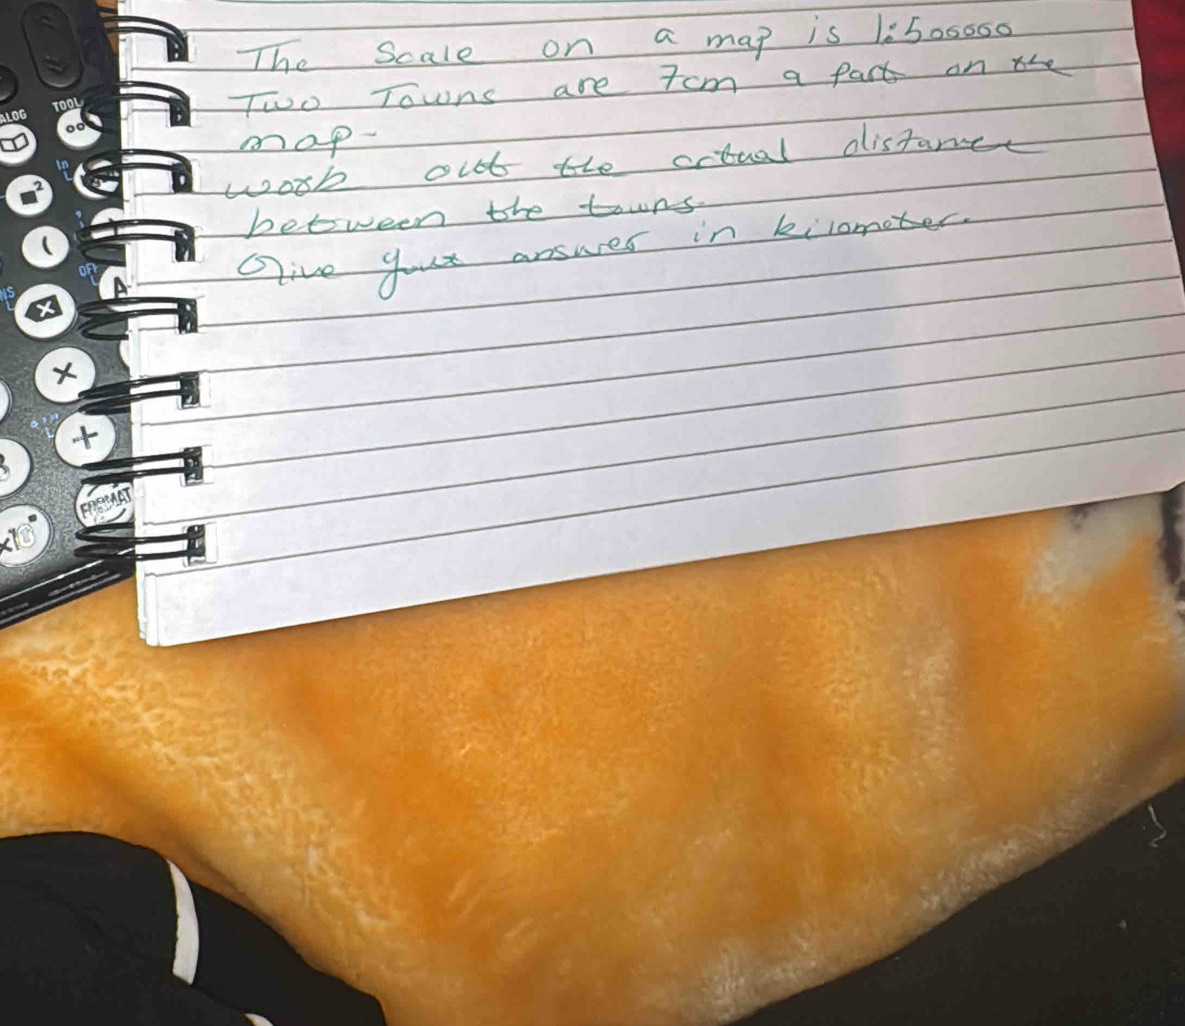 The Scale on a map is 1:500000
Two Towns are 7cm a part on the
map-
work out the actual distance
between the towns.
Give your answer in kilometer.
ALOG
TOOL
In
(
OFF
A
×
+
FORMAT
×10